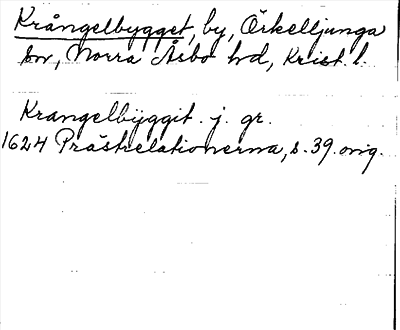 Krångelbygget, by, Örkelljunga
sn, Norra Åsbo hd, Krist. l.
Krangelbÿggit. j. gr.
1624 Prästrelationerna, s. 39. orig.